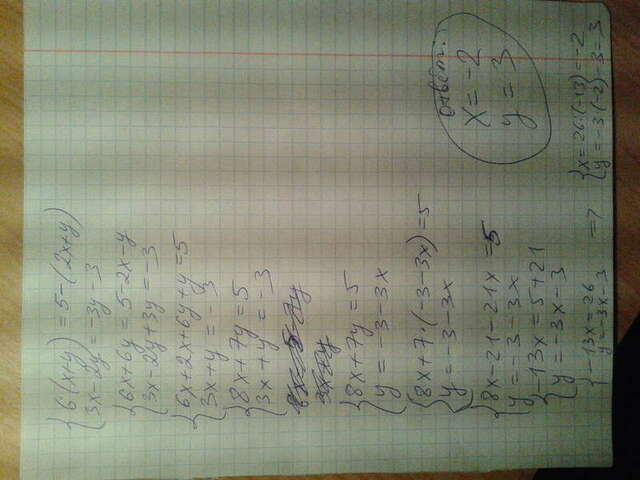 {6(x+y) = 5-(2x+y)
3x-2y = -3y-3
{6x+6y = 5-2x-y
3x-2y+3y = -3
{6x+2x+6y+y = 5
3x+y = -3
{8x+7y = 5
3x+y = -3
{8x+7y = 5
y = -3-3x
{8x+7·(-3-3x) = 5
y = -3-3x
{8x-21-21x = 5
y = -3-3x
{-13x = 5+21
y = -3x-3
{-13x = 26
y = -3x-3
=7
{x = 26:(-13) = -2
y = -3·(-2)-3 = 3
ответ:
x = -2
y = 3